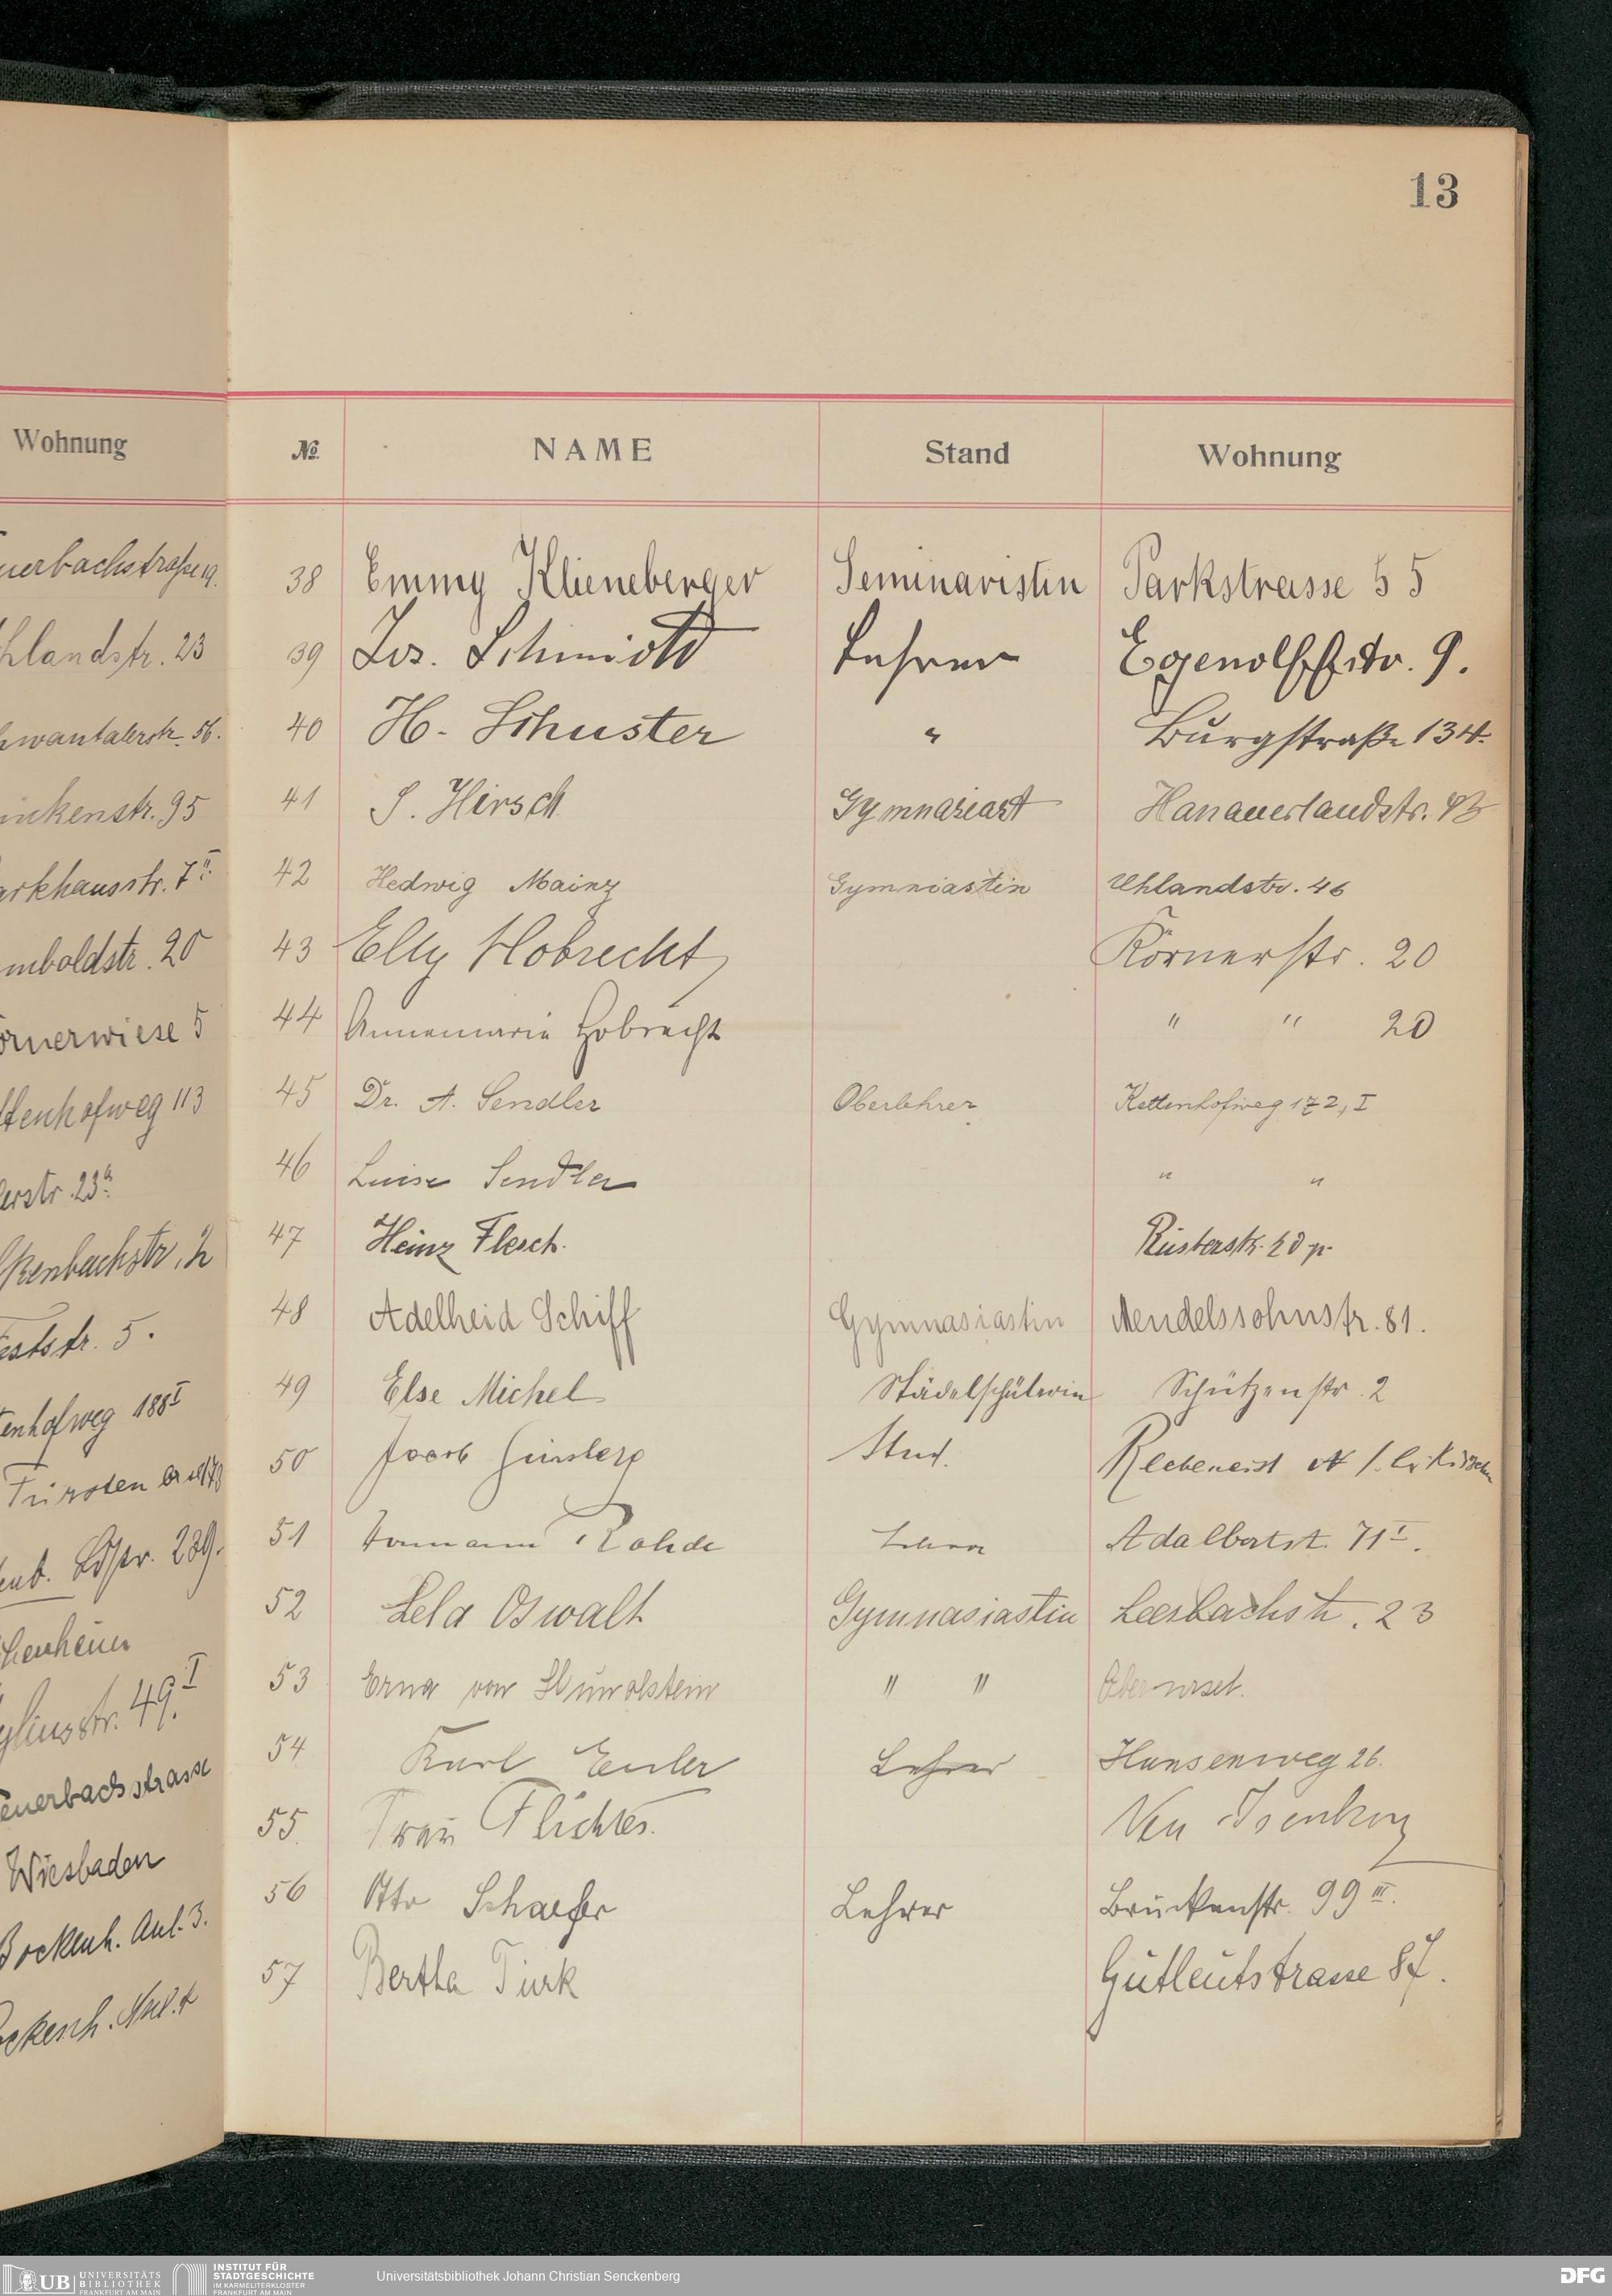 13
Wohnung
№ NAME Stand Wohnung
38 Emmy Klieneberger Seminaristin Parkstrasse 55
39 Jos. Schmidt Lehrer Egenolffstr. 9.
40 H. Schuster " Burgstraße 134.
41 S. Hirsch Gymnasiast Hanauerlandstr.
42 Hedwig Mainz Gymniastin Uhlandstr. 46
43 Elly Hobrecht Körnerstr. 20
44 Annemarie Hobrecht " " 20
45 Dr. A. Sendler Oberlehrer Kettenhofweg 172, I
46 Luise Sendler " "
47 Heinz Flesch. Rüsterstr. 20 p.
48 Adelheid Schiff Gymnasiastin Mendelssohnstr. 81.
49 Else Michel Städelschülerin Schützenstr. 2
50 Jacob Ginsberg Stud.
51 Rohde Lehrer Adalbertst. 71 I.
52 Lela Oswalt Gymnasiastin Leerbachstr. 23
53 Erna von Hunolstein " " Oberursel.
54 Karl Euler Lehrer Hansenweg 26.
55 Frau Neu Isenburg
56 Otto Schaefer Lehrer Brückenstr. 99 III.
57 Bertha Türk Gutleutstrasse 87.
uerbachstraße 19.
hlandstr. 23
hwantalerstr. 56.
inkenstr. 95
arkhausstr. 7 II
mboldstr. 20
örnerwiese 5
ttenhofweg 113
erstr. 23a
kenbachstr. 2
eststr. 5.
enhofweg 188 I
239.
yliusstr. 49 I.
euerbachstrasse
Wiesbaden
Bockenh. Anl. 3.
ockenh. Anl. 4
UB UNIVERSITÄTS BIBLIOTHEK FRANKFURT AM MAIN
INSTITUT FÜR STADTGESCHICHTE IM KARMELITERKLOSTER FRANKFURT AM MAIN
Universitätsbibliothek Johann Christian Senckenberg
DFG